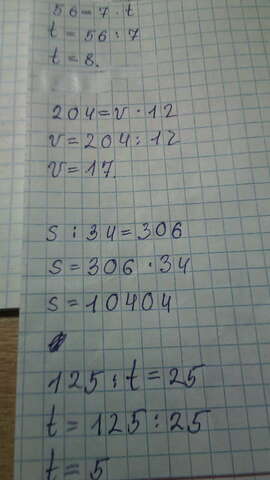 56=7·t
t=56:7
t=8.
204=v·12
v=204:12
v=17.
s:34=306
s=306·34
s=10404
125:t=25
t=125:25
t=5